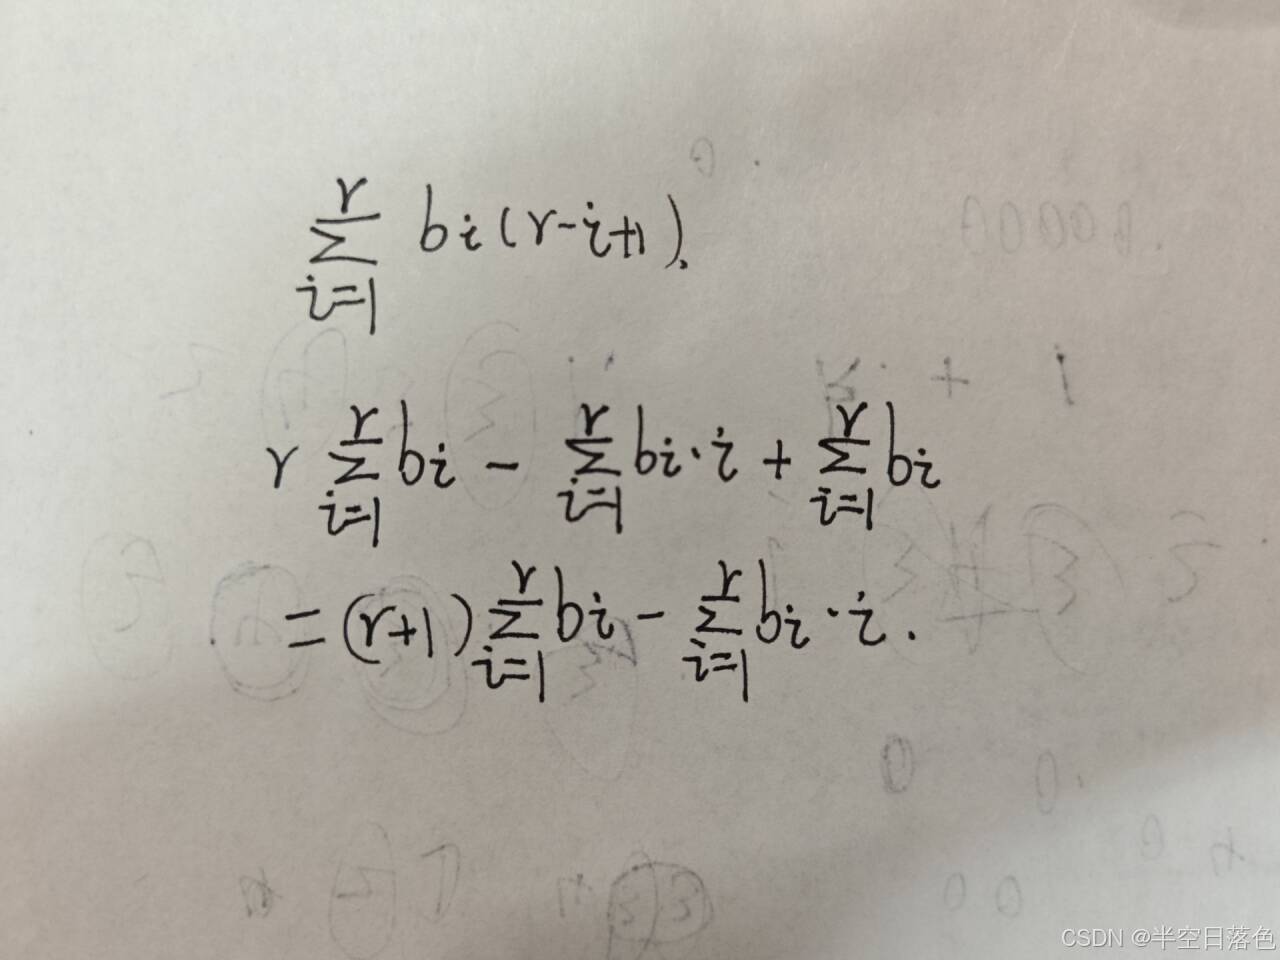 $\sum_{i=1}^{r} b_i(r-i+1).$
$r\sum_{i=1}^{r} b_i - \sum_{i=1}^{r} b_i \cdot i + \sum_{i=1}^{r} b_i$
$= (r+1)\sum_{i=1}^{r} b_i - \sum_{i=1}^{r} b_i \cdot i.$
CSDN @半空日落色